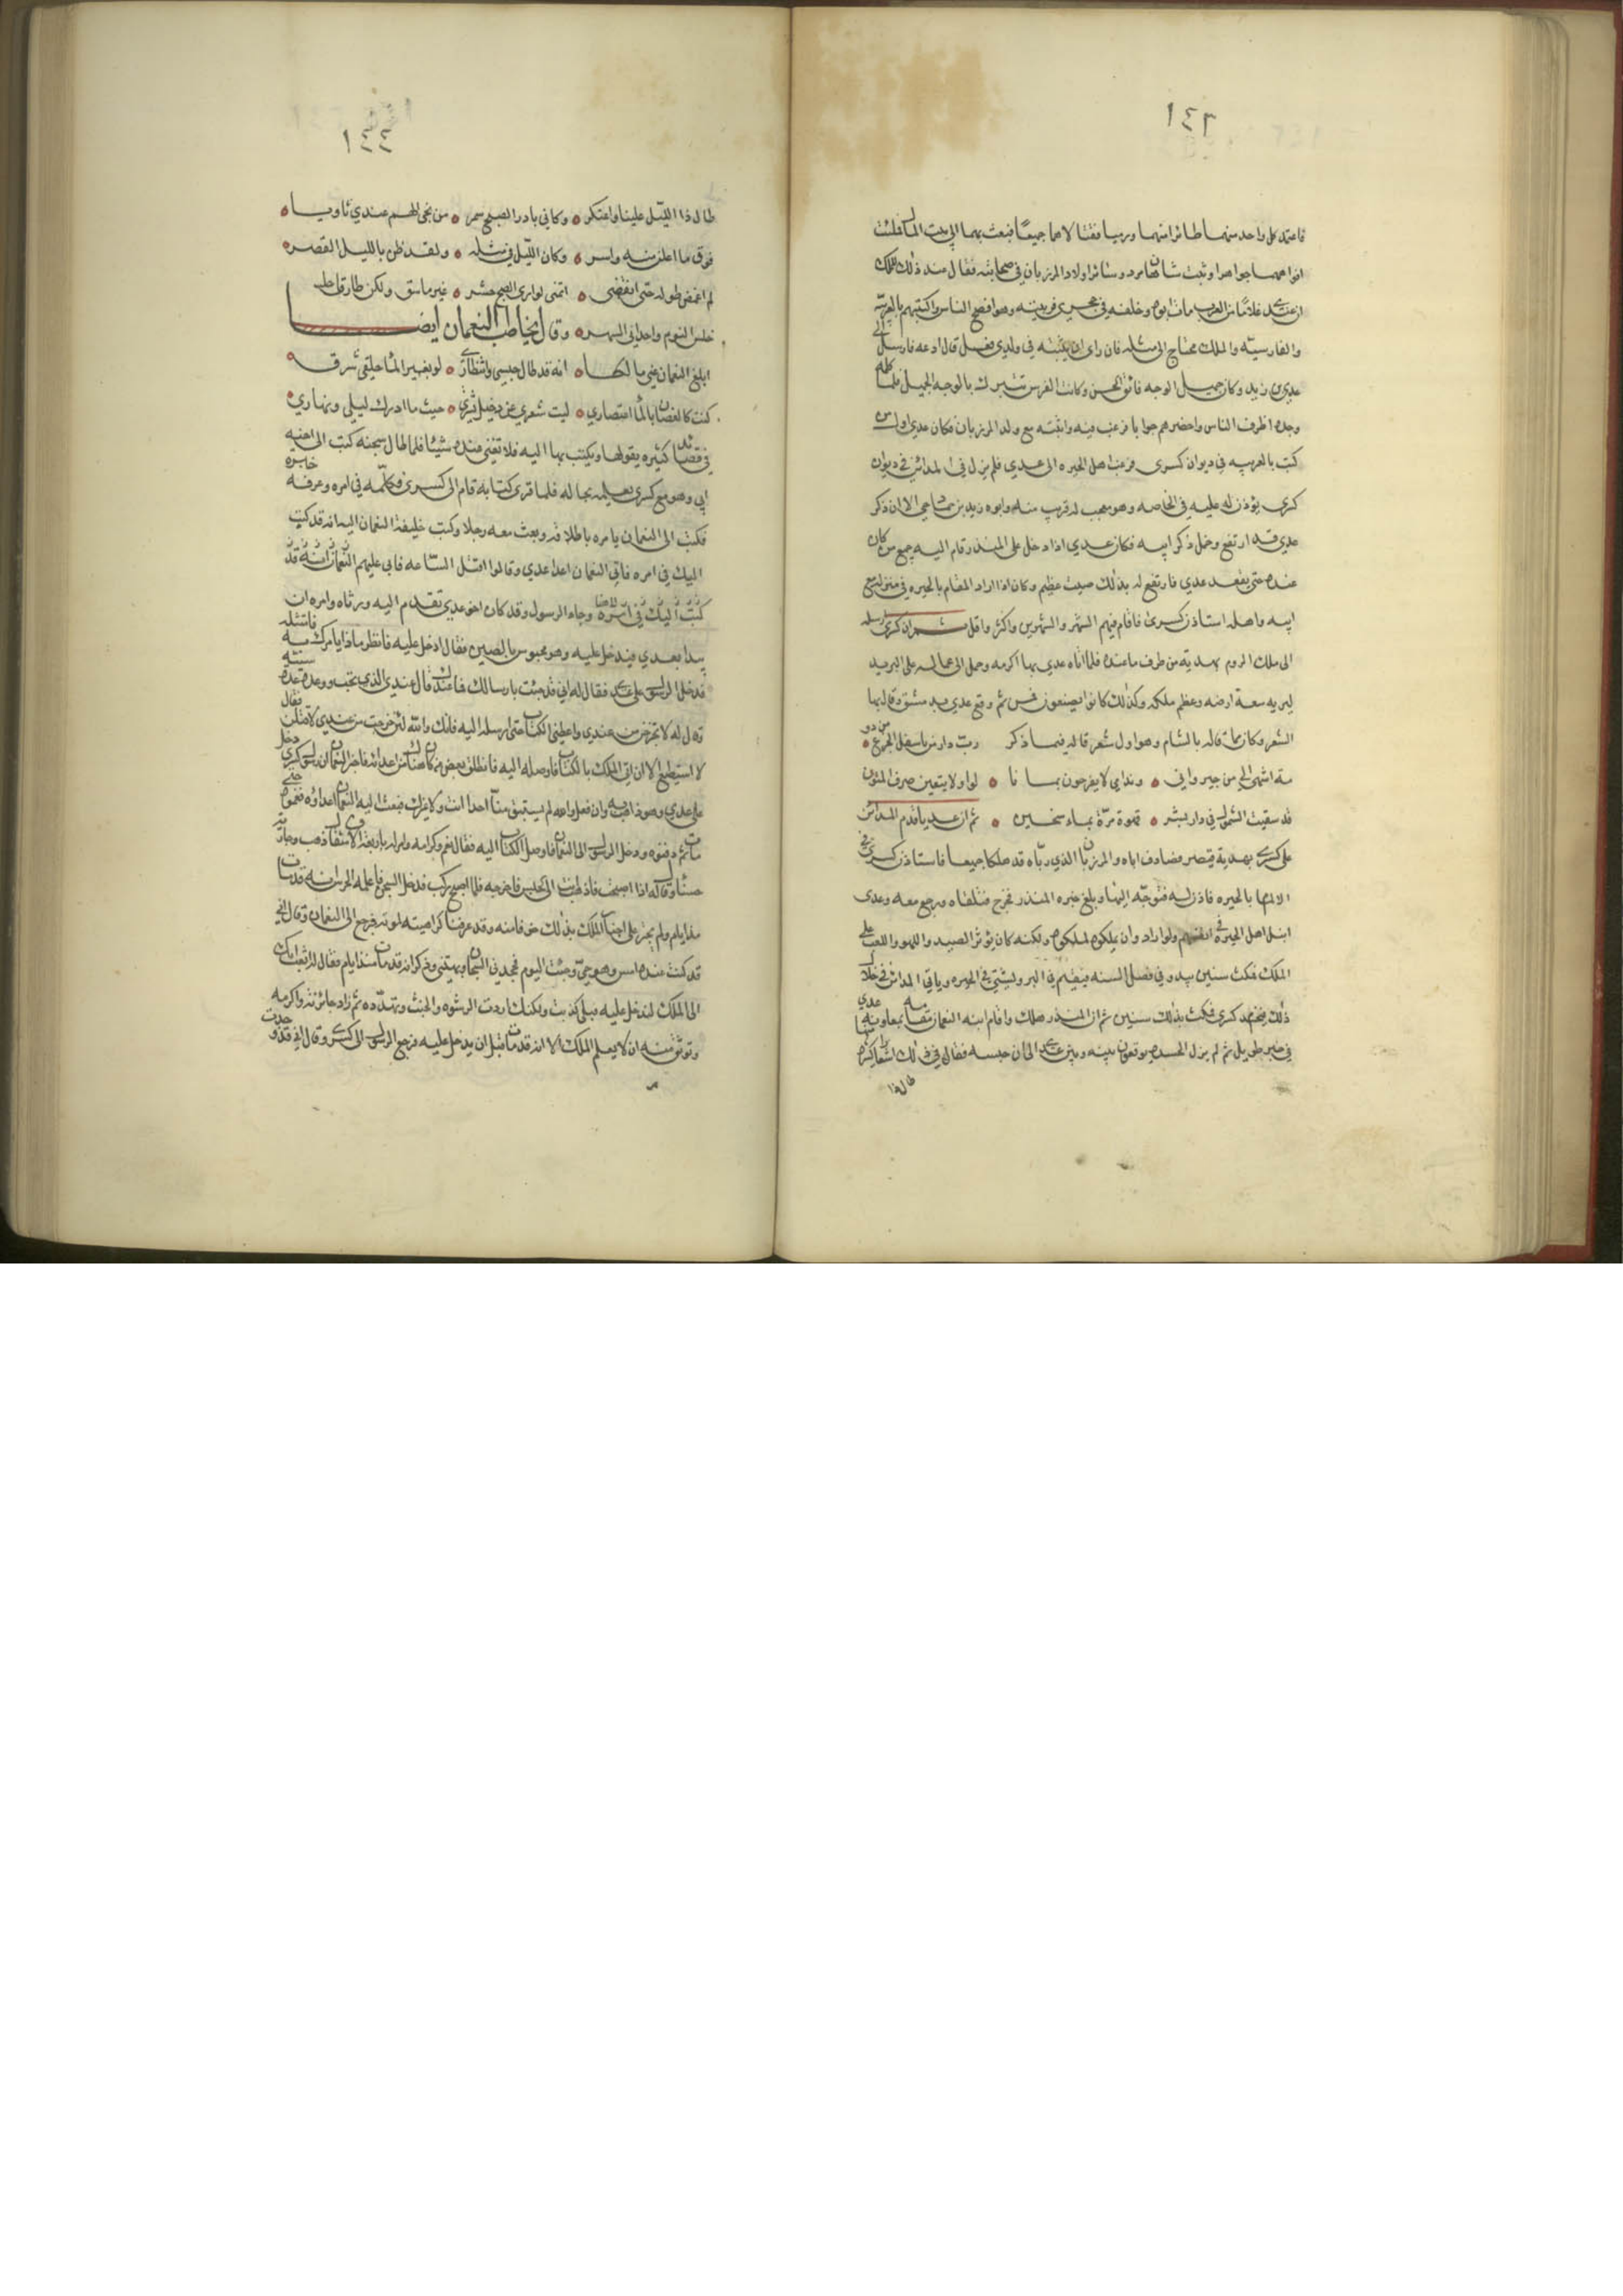 ١٤٣
فاعتمد كل واحد منهما طائرا منهما ورميا فقتلاهما جميعًا فبعث بهما الى بيت المال فملئت
افواههما جواهرا وثبت شاهان مرد وسائر اولاد المرزبان في صحابته فقال عند ذلك للملك
ان عندي غلامًا من العرب مات ابوه وخلفه في حجري فربيته وهو افصح الناس واكتبهم بالعربيّه
والفارسيّه والملك محتاج الى مثله فان راى ان يثبته في ولدي فعل قال ادعه فارسل الى
عدي بن زيد وكان جميل الوجه فائق الحسن وكانت الفرس تتبرك بالوجه الجميل فلما كلمه
وجده اظرف الناس واحضرهم جوابا فرغب فيه واثبته مع ولد المرزبان فكان عدي اول من
كتب بالعربيه في ديوان كسرى فرغب اهل الحيره الى عدي فلم يزل في المدائن في ديوان
كسرى يؤذن له عليه في الخاصه وهو معجب له قريب منه وابوه زيد بن حماد حي الا ان ذكر
عدي قد ارتفع وخمل ذكر ابيه فكان عدي اذا دخل على المنذر قام اليه جميع من كان
عنده حتى يقعد عدي فارتفع له بذلك صيت عظيم وكان اذا اراد المقام بالحيره في منزله مع
ابيه واهله استاذن كسرى فاقام فيهم الشهر والشهرين واكثر واقل ثم ان كسرى ارسله
الى ملك الروم بهدية من طرف ما عنده فلما اتاه عدي بها اكرمه وحمل الى عماله على البريد
ليريه سعة ارضه وعظم ملكه وكذلك كانوا يصنعون فمن ثم وقع عدي بدمشق وقال بها
الشعر وكان مما قاله بالشام وهو اول شعر قاله فيما ذكر رب دار باسفل الجزع من دو
مة اشهى الي من جيروان • وندامى لا يفرحون بما نا • لوا ولا يتقين صرف المنون
قد سقيت الشمول في دار بشر • قهوة مرّة بماء سخين • ثم ان عديا قدم المدائن
على كسرى بهدية قيصر فصادف اباه والمرزبان الذي ربّاه قد هلكا جميعا فاستاذن كسرى في
الالمام بالحيره فاذن له فتوجّه اليها وبلغ خبره المنذر فخرج فتلقاه ورجع معه وعدي
انبل اهل الحيرة في انفسهم ولو اراد وان يملكوه لملكوه ولكنه كان يؤثر الصيد واللهو واللعب على
الملك فمكث سنين يبدو في فصل السنه فيقيم في البر ويشتي في الحيره وياتي المدائن في خلال
ذلك فيخدم كسرى فمكث بذلك سنين ثم ان المنذر هلك واقام ابنه النعمان مقامه بمعاونة عدي
في خبر طويل ثم لم يزل الحسده يوقعون بينه وبين عدي الى ان حبسه فقال في ذلك اشعارا كثيره منها
طال ذا
١٤٤
طال ذا الليّل علينا واعتكر • وكاني بادر الصبح سمر • من نجى الهم عندي ثاويـا •
فوق ما اعلن منه واسر • وكان الليّل في مثله • ولقد ظن بالليل القصر •
لم اغمض طوله حتى انقضى • اتمنى لو ارى الصبح حشر • غير ما عشق ولكن طارق
خلس النوم واجداني السهر • وقال يخاطب النعمان ايضـا
ابلغ النعمان عني مالكـا • انه قد طال حبسي وانتظاري • لو بغير الماء حلقي شرق •
كنت كالغصان بالماء اعتصاري • ليت شعري عن دخيل يفتري • حيث ما ادرك ليلي ونهاري •
في قصائد كثيره يقولها ويكتب بها اليه فلا تغني عنده شيئا فلما طال سجنه كتب الى اخيه
ابي وهو مع كسرى يعلمه بحاله فلما قرئ كتابه قام الى كسرى فكلّمه في امره وعرفه خبره
فكتب الى النعمان يامره باطلاقه وبعث معه رجلا وكتب خليفة النعمان اليه انه قد كتب
اليك في امره فاتى النعمان اعداء عدي وقالوا اقتل الساعه فابى عليهم النعمان انه قد
كتب اليك في امره وجاء الرسول وقد كان اخو عدي تقدم اليه ورشاه وامره ان
يبدا بعدي فيدخل عليه وهو محبوس بالصنين فقال ادخل عليه فانظر ماذا يامرك به فامتثله
فدخل الرسول على عدي فقال له اني قد جئت بارسالك فما عندك قال عندي الذي تحب ووعده عدة سنيّه
وقال له لا تخرجن من عندي واعطني الكتاب حتى ارسله اليه فانك والله لئن خرجت من عندي لاقتلن فقال
لا استطيع الا ان اتي الملك بالكتاب فاوصله اليه فانطلق بعض من كان هناك من اعدائه فاخبر النعمان ان رسول كسرى دخل
على عدي وهو ذاهب به وان فعل والله لم يستبق منا احدا انت ولا غيرك فبعث اليه النعمان اعداؤه فغموه حتى
مات ثم دفنوه ودخل الرسول الى النعمان فاوصل الكتاب اليه فقال نعم وكرامه وامر له باربعة الاف مثقال ذهب وجارية
حسناء وقال له اذا اصبحت فادخل انت الى الحبس فاخرجه فلما اصبح ركب فدخل السجن فاعلمه الحرس انه قد مات
منذ ايام ولم نجتر على اخبار الملك بذلك خوفا منه وقد عرفنا كراهيته لموته فرجع الى النعمان وقال اني
قد كنت عنده امس وهو حيّ وجئت اليوم فجحدني السجان وبهتني وذكر انه قد مات منذ ايام فقال له ايبعث بك
الى الملك لتدخل عليه قبلي كذبت ولكنك اردت الرشوه والخبث وتهدّده ثم زاد جائزته واكرمه
وتوثق منه ان لا يعلم الملك الا انه قد مات قبل ان يدخل عليه فرجع الرسول الى كسرى وقال اني قد وجدت